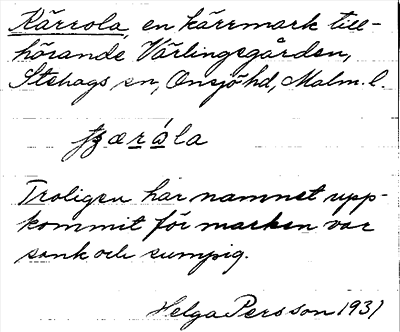 Kärrola, en kärrmark till-
hörande Värlingsgården,
Stehags sn, Onsjö hd, Malm. l.
ꞔærǻla
Troligen har namnet upp-
kommit för marken var
sank och sumpig.
Helga Persson 1931